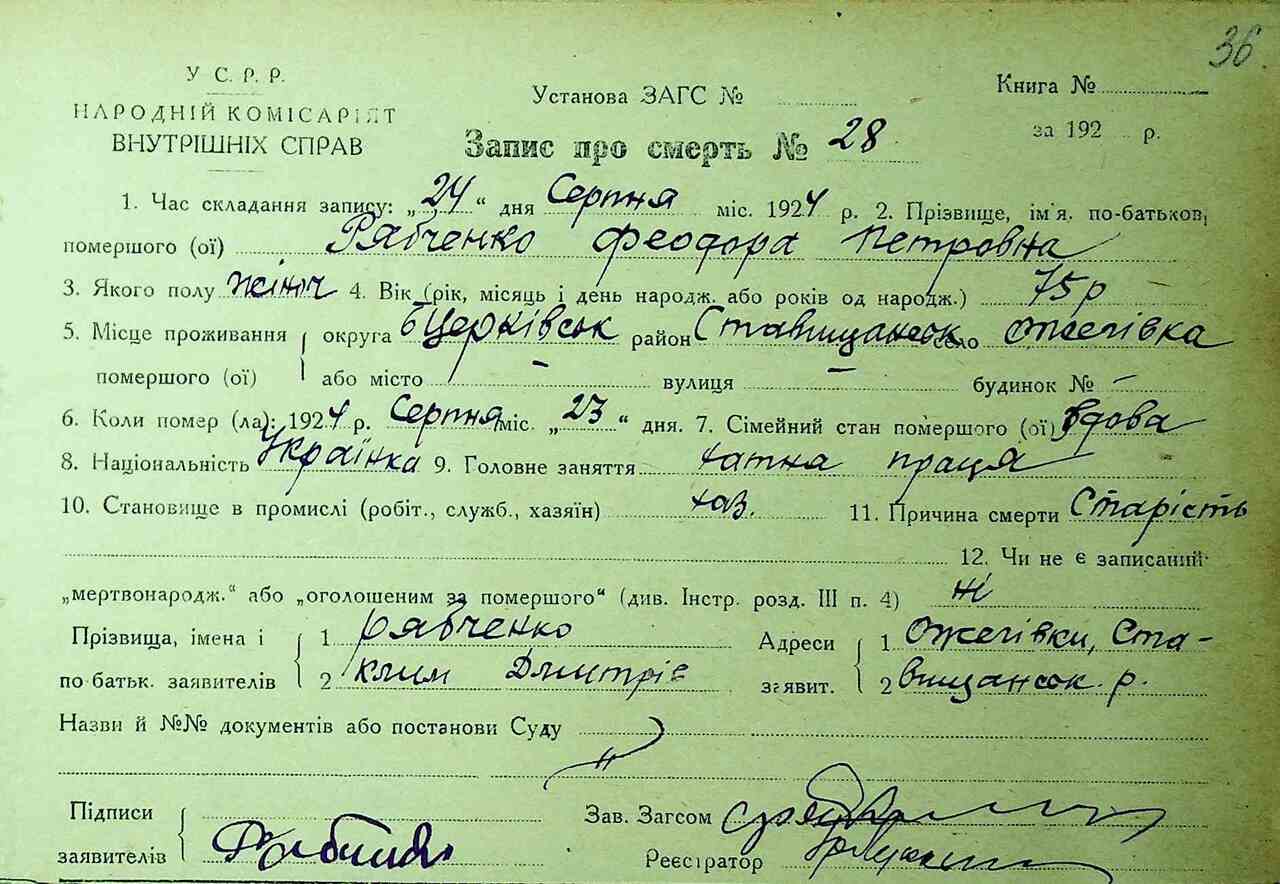 36
У С. Р. Р.
НАРОДНІЙ КОМІСАРІЯТ
ВНУТРІШНІХ СПРАВ
Установа ЗАГС №
Книга №
за 192 р.
Запис про смерть № 28
1. Час складання запису: „24“ дня Серпня міс. 1924 р. 2. Прізвище, ім'я. по-батьков,
помершого (ої) Рябченко Феодора Петровна
3. Якого полу жіноч 4. Вік (рік, місяць і день народж. або років од народж.) 75 р
5. Місце проживання округа БЦерківськ район Ставищанськ село Ожегівка
помершого (ої) або місто – вулиця – будинок № –
6. Коли помер (ла): 1924 р. Серпня міс. „23“ дня. 7. Сімейний стан помершого (ої) вдова
8. Національність Українка 9. Головне заняття хатна праця
10. Становище в промислі (робіт., служб., хазяїн) хаз. 11. Причина смерти Старість
12. Чи не є записаний
„мертвонародж.“ або „оголошеним за помершого“ (див. Інстр. розд. III п. 4) Ні
Прізвища, імена і 1 Рябченко Адреси 1 Ожегівки, Ста-
по-батьк. заявителів 2 Клим Дмитрів заявит. 2 вищанськ. р.
Назви й №№ документів або постанови Суду
"
Підписи Зав. Загсом
заявителів Реєстратор